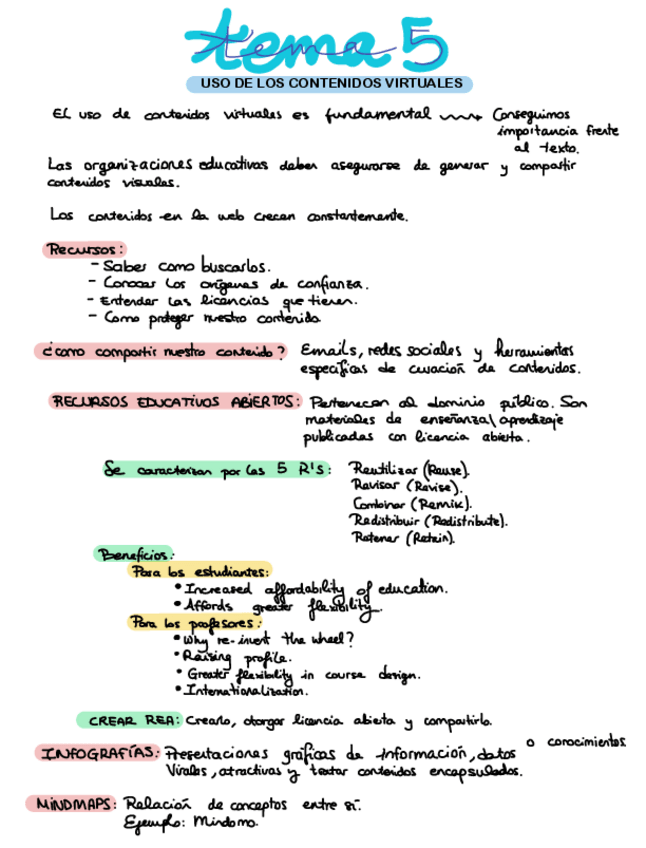 tema 5
USO DE LOS CONTENIDOS VIRTUALES
El uso de contenidos virtuales es fundamental → Conseguimos
importancia frente
al texto.
Las organizaciones educativas deben asegurarse de generar y compartir
contenidos visuales.
Los contenidos en la web crecen constantemente.
Recursos:
- Saber como buscarlos.
- Conocer los orígenes de confianza.
- Entender las licencias que tienen.
- Como proteger nuestro contenido
¿como compartir nuestro contenido? Emails, redes sociales y herramientas
específicas de curación de contenidos.
RECURSOS EDUCATIVOS ABIERTOS: Pertenecen al dominio público. Son
materiales de enseñanza/aprendizaje
publicadas con licencia abierta.
Se caracterizan por las 5 R's: Reutilizar (Reuse).
Revisar (Revise).
Combinar (Remix).
Redistribuir (Redistribute).
Retener (Retain).
Beneficios:
Para los estudiantes:
• Increased affordability of education.
• Affords greater flexibility.
Para los profesores:
• Why re-invert the wheel?
• Raising profile.
• Greater flexibility in course design.
• Internationalization.
CREAR REA: Crearlo, otorgar licencia abierta y compartirlo.
INFOGRAFÍAS: Presentaciones gráficas de información, datos o conocimientos.
Virales, atractivas y textar contenidos encapsulados.
MINDMAPS: Relación de conceptos entre sí.
Ejemplo: Mindomo.